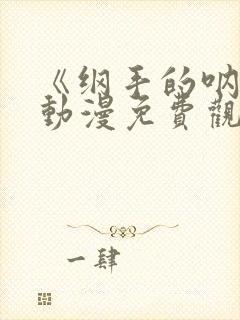 《纲手的呐
動漫免費觀
一肆